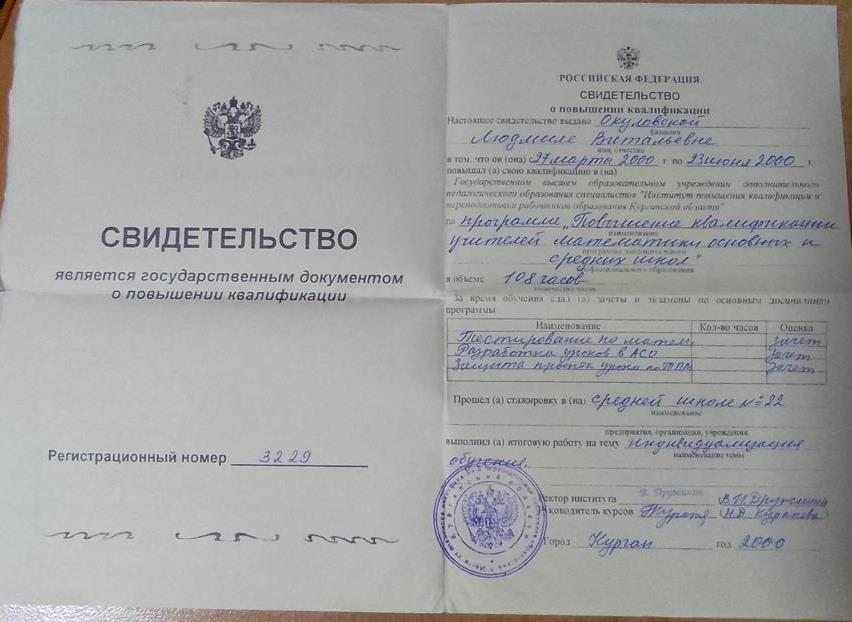 СВИДЕТЕЛЬСТВО
является государственным документом
о повышении квалификации
Регистрационный номер 3229
РОССИЙСКАЯ ФЕДЕРАЦИЯ
СВИДЕТЕЛЬСТВО
о повышении квалификации
Настоящее свидетельство выдано Окуловской
фамилия
Людмиле Витальевне
имя, отчество
в том, что он (она) 27 марта 2000 г. по 23 июня 2000 г.
повышал (а) свою квалификацию в (на)
Государственном высшем образовательном учреждении дополнительного
педагогического образования специалистов "Институт повышения квалификации и
переподготовки работников образования Курганской области"
по программе „Повышение квалификации
наименование
учителей математики основных и
средних школ"
профессионального образования
в объеме 108 часов
За время обучения сдал (а) зачеты и экзамены по основным дисциплинам
программы
Наименование Кол-во часов Оценка
Тестирование по матем зачет
Разработка уроков в АСО Зачет
Защита проекта урока по ТПМ Зачет
Прошел (а) стажировку в (на) средней школе №22
наименование
предприятия, организации, учреждения
выполнил (а) итоговую работу на тему индивидуализация
наименование темы
обучения.
Ректор института
Руководитель курсов
Город Курган год 2000